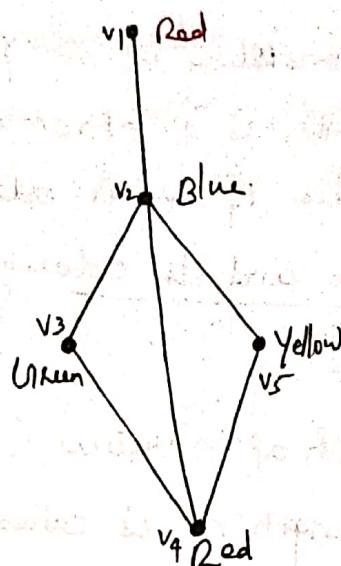 V1 Red
V2 Blue.
V3
Green
Yellow
V5
V4 Red